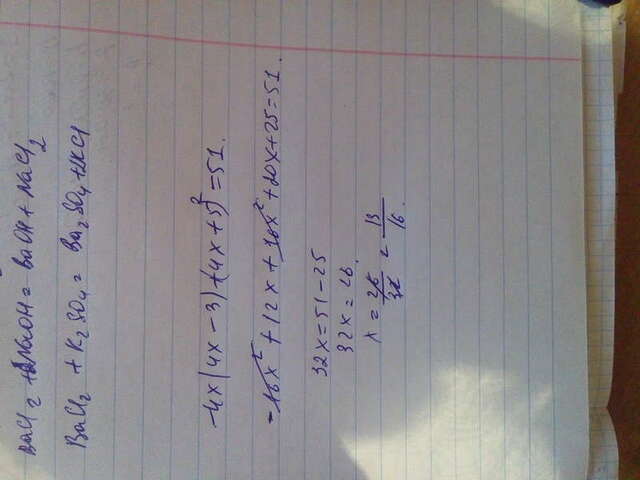 BaCl₂ + 2NaOH = BaOH + NaCl₂
BaCl₂ + K₂SO₄ = Ba₂SO₄ + 2KCl
-4x(4x-3)+(4x+5)² = 51.
-16x² + 12x + 16x² + 20x + 25 = 51.
32x = 51 - 25
32x = 26.
x = 26/32 = 13/16.